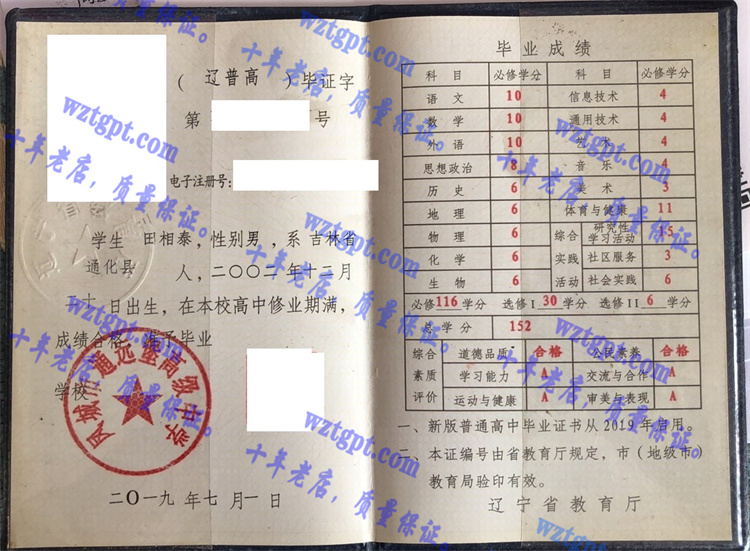 （ 辽普高 ）毕证字
第 号
电子注册号:
学生 田相泰，性别男，系 吉林省
通化县 人，二〇〇二年十二月
二十日出生，在本校高中修业期满，
成绩合格，准予毕业
学校
凤城市通远堡高级中学
二〇一九 年 七 月 一 日
毕业成绩
科 目 必修学分 科 目 必修学分
语 文 10 信息技术 4
数 学 10 通用技术 4
外 语 10 艺 术 4
思想政治 8 音 乐 4
历 史 6 美 术 3
地 理 6 体育与健康 11
物 理 6 综合 研究性学习活动 15
化 学 6 实践 社区服务 3
生 物 6 活动 社会实践 6
必修116学分 选修I 30 学分 选修II 6 学分
总 学 分 152
综合 道德品质 合格 公民素养 合格
素质 学习能力 A 交流与合作 A
评价 运动与健康 A 审美与表现 A
一、新版普通高中毕业证书从2019年启用。
二、本证编号由省教育厅规定，市（地级市）
教育局验印有效。
辽宁省教育厅
wztgpt.com
十年老店，质量保证。